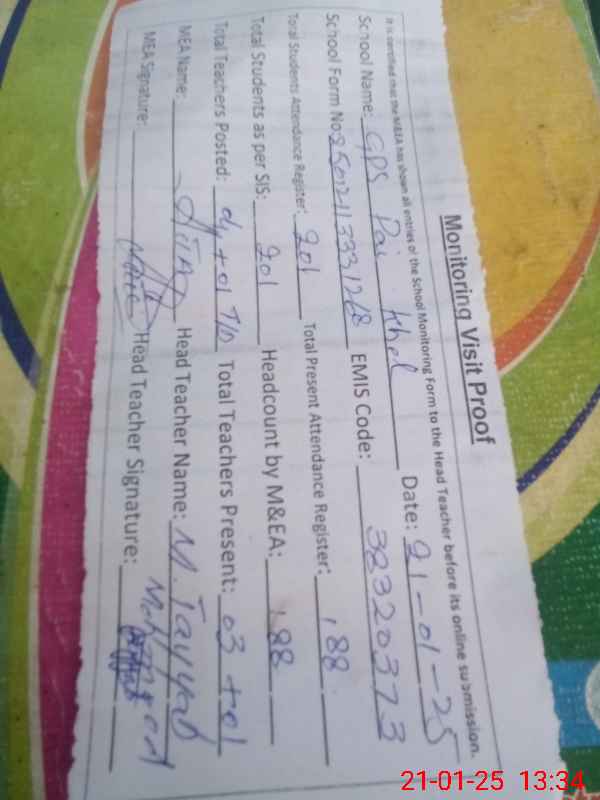 Monitoring Visit Proof
It is certified that the M&EA has shown all entries of the School Monitoring Form to the Head Teacher before its online submission.
School Name: GPS Pai Khel Date: 21-01-25
School Form No: EMIS Code: 38320373
Total Students Attendance Register: 201 Total Present Attendance Register: 188
Total Students as per SIS: 201 Headcount by M&EA: 188
Total Teachers Posted: 04+01 Total Teachers Present: 03+01
MEA Name: Head Teacher Name: M. Tayyab
MEA Signature: Head Teacher Signature:
21-01-25 13:34